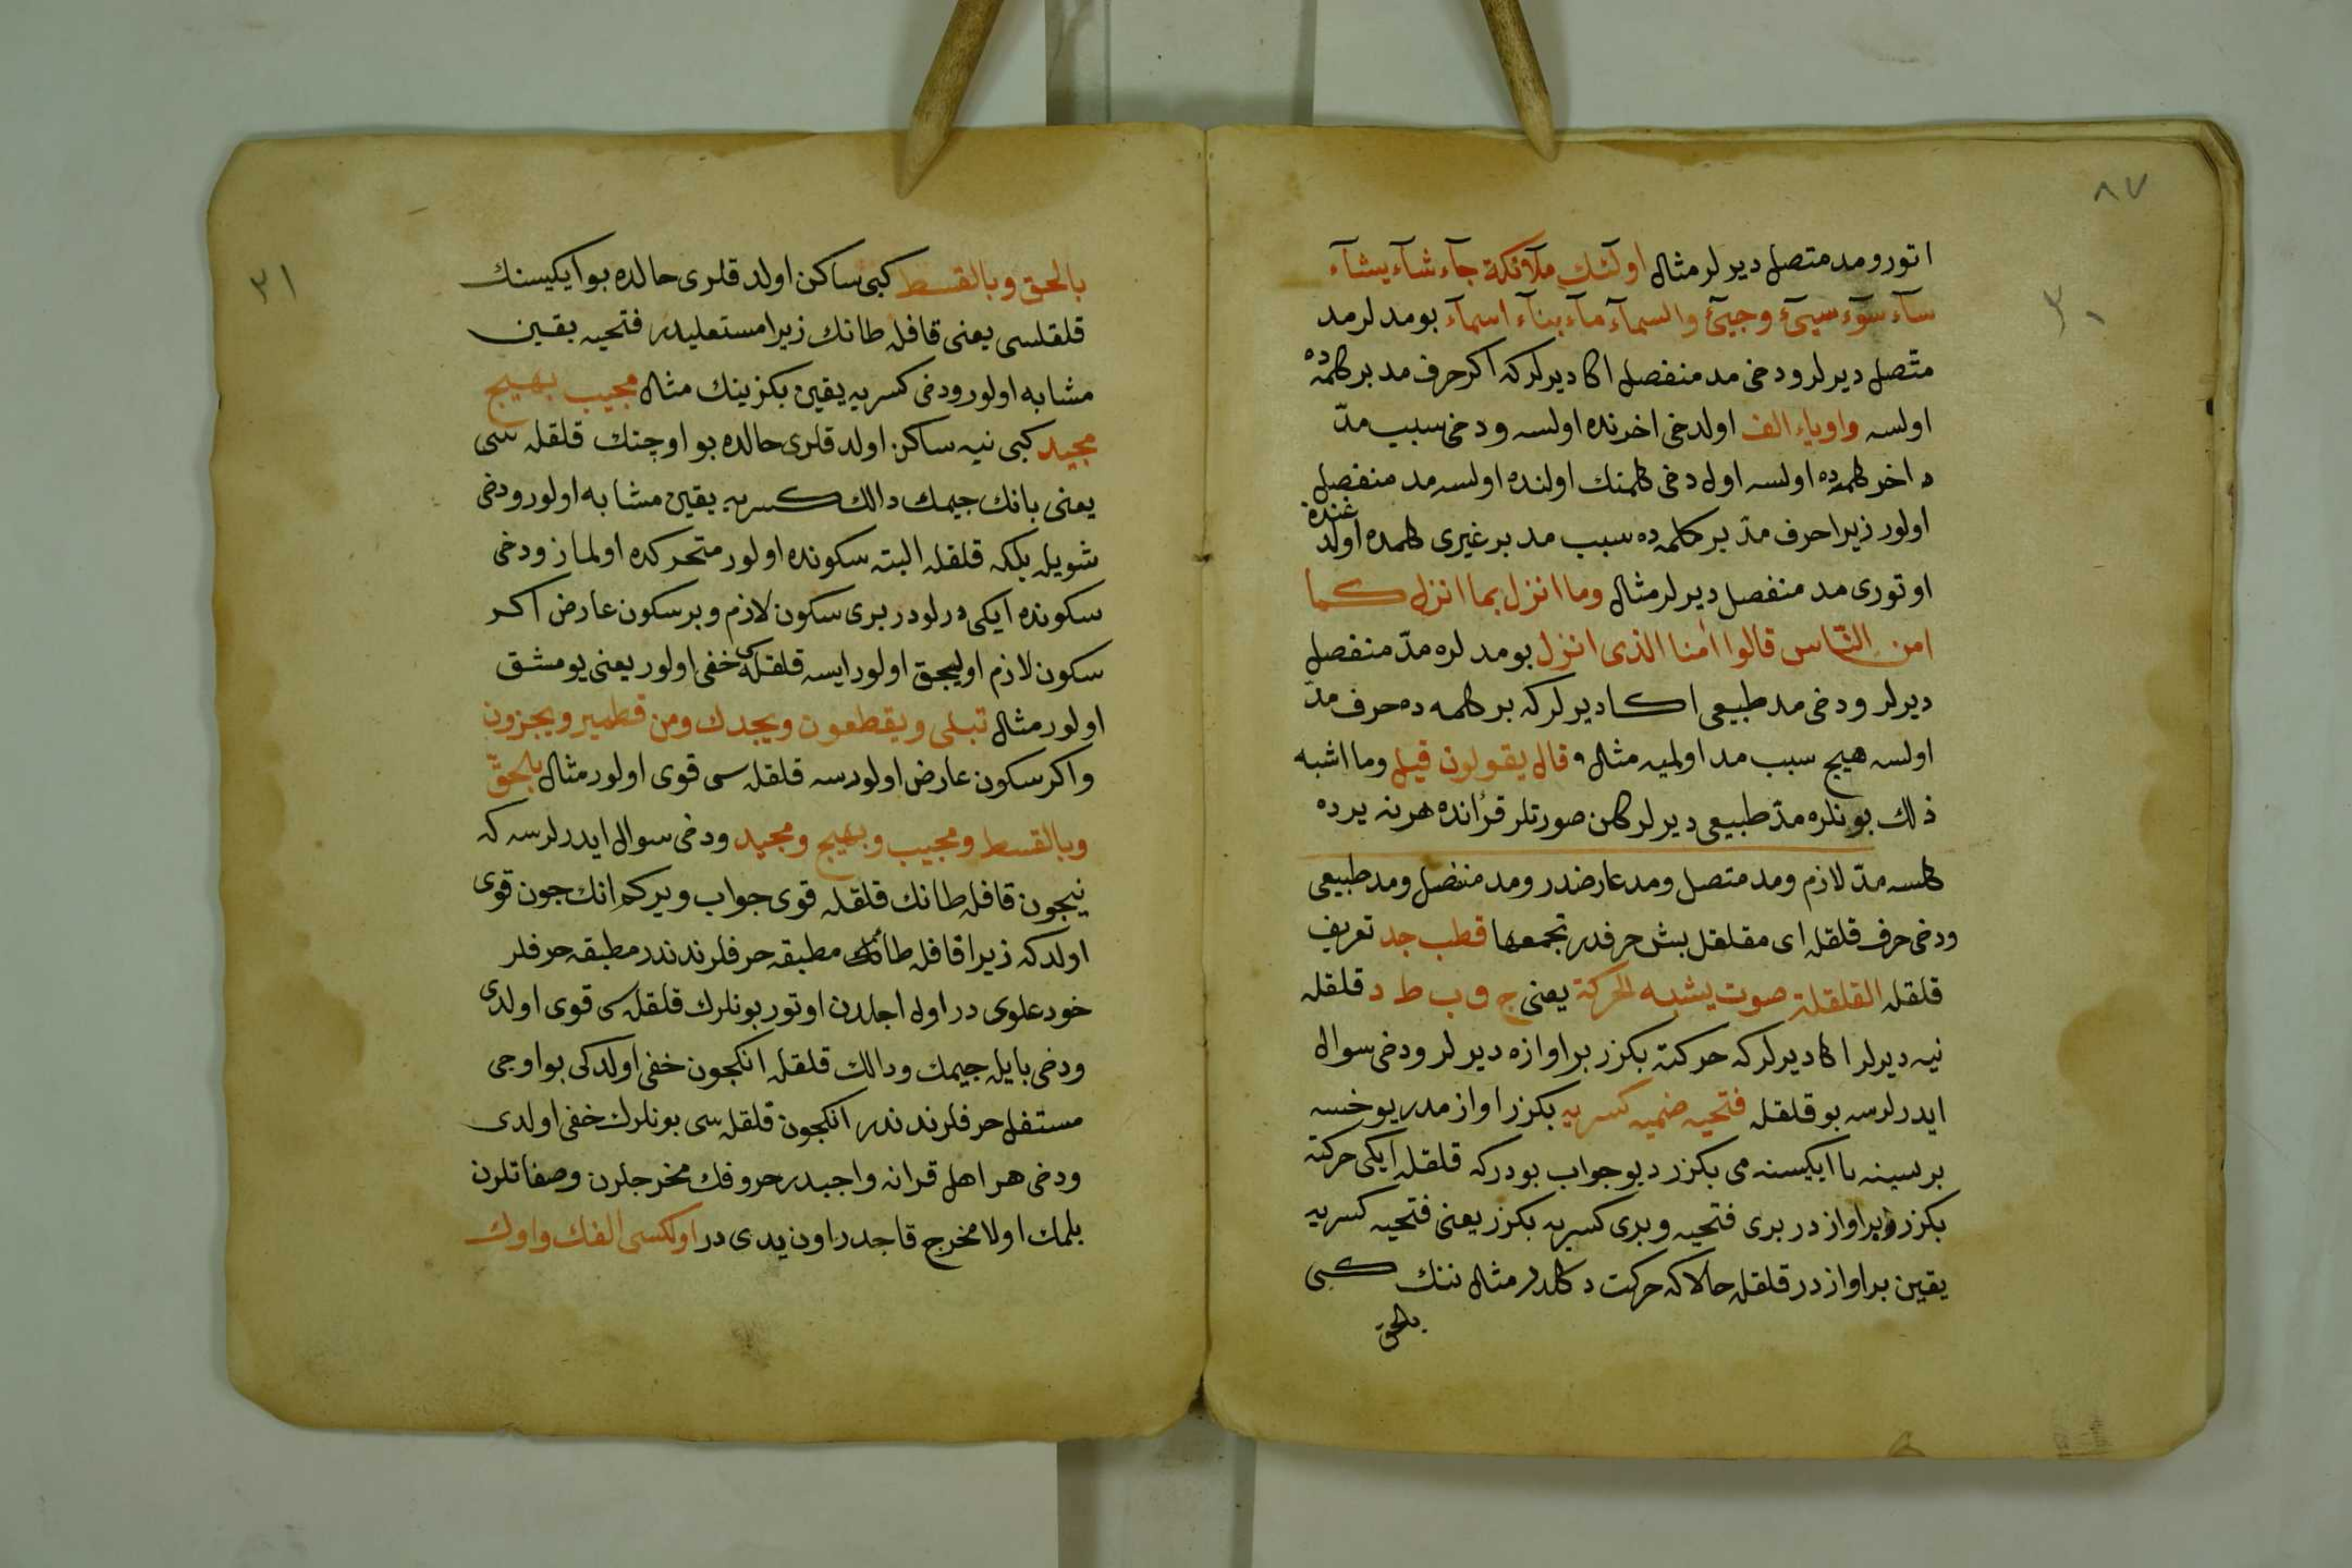 ٨٧
٣٠
اتورو مد متصل ديرلر مثال اولئك ملآئكة جآء شآء يشآء
سآء سوٓء سيٓئ وجيٓئ والسمآء مآء بنآء اسمآء بو مدلر مد
متّصل ديرلر ودخى مد منفصل اكا ديرلر كه اكر حرف مد بر كلمه ده
اولسه واو ياء الف اولدخى اخرنده اولسه ودخى سبب مدّ
داخر كلمه ده اولسه اول دخى كلمنك اولنده اولسه مد منفصل
اولور زيرا حرف مدّ بر كلمه ده سبب مد بر غيرى كلمده اولدغندن
اوتورى مد منفصل ديرلر مثال وما انزل بما انزل كما
امن النّاس قالوا اٰمنا الذى انزل بو مدلره مدّ منفصل
ديرلر ودخى مد طبيعى اكا ديرلر كه بر كلمه ده حرف مدّ
اولسه هيج سبب مد اولميه مثال قال يقولون قيل وما اشبه
ذلك بونلره مدّ طبيعى ديرلر كلن صورتلر قرٔانده هر نه يرده
كلسه مدّ لازم ومد متصل ومد عارضدر ومد منفصل ومد طبيعى
ودخى حرف قلقله اى مقلقل بش حرفدر تجمعها قطب جد تعريف
قلقله القلقلة صوت يشبه الحركة يعنى ج ق ب ط د قلقله
نيه ديرلر اكا ديرلر كه حركته بكزر بر اوازه ديرلر ودخى سوال
ايدرلرسه بو قلقله فتحيه ضميه كسريه بكزر اواز مدر يوخسه
برسينه يا ايكيسنه مى بكزر ديو جواب بودر كه قلقله ايكى حركته
بكزر بر اواز در برى فتحيه وبرى كسريه بكزر يعنى فتحيه كسريه
يقين بر اواز در قلقله حالاكه حركت دكلدر مثال ننك كبى
بالحق
٣١
بالحق وبالقسط كبى ساكن اولدقلرى حالده بو ايكيسنك
قلقلسى يعنى قافله طانك زيرا مستعليدر فتحيه يقين
مشابه اولور ودخى كسريه يقين بكزينك مثال مجيب بهيج
مجيد كبى نيه ساكن اولدقلرى حالده بو اوچنك قلقله سى
يعنى بانك جيمك دالك كسريه يقين مشابه اولور ودخى
شويله بلكه قلقله البته سكونده اولور متحركده اولماز ودخى
سكونده ايكى درلودر برى سكون لازم وبر سكون عارض اكر
سكون لازم اوليجق اولور ايسه قلقله سى خفى اولور يعنى يومشق
اولور مثال تبلى ويقطعون ويجدك ومن قطمير ويجزون
واكر سكون عارض اولورسه قلقله سى قوى اولور مثال بالحقّ
وبالقسط ومجيب وبهيج ومجيد ودخى سوال ايدرلرسه كه
نيجون قافله طانك قلقله قوى جواب ويركم انك جون قوى
اولدكه زيرا قافله طانك مطبقه حرفلرندندر مطبقه حرفلر
خود علوى در اول اجلدن اوتور بونلرك قلقله سى قوى اولدى
ودخى بايله جيمك ودالك قلقله انكجون خفى اولدكى بو اوجى
مستفل حرفلرندندر انكجون قلقله سى بونلرك خفى اولدى
ودخى هر اهل قرانه واجبدر حروفك مخرجلرن وصفاتلرن
بلمك اولا مخرج قاجدر اون يدى در اولكسى الفك واوك